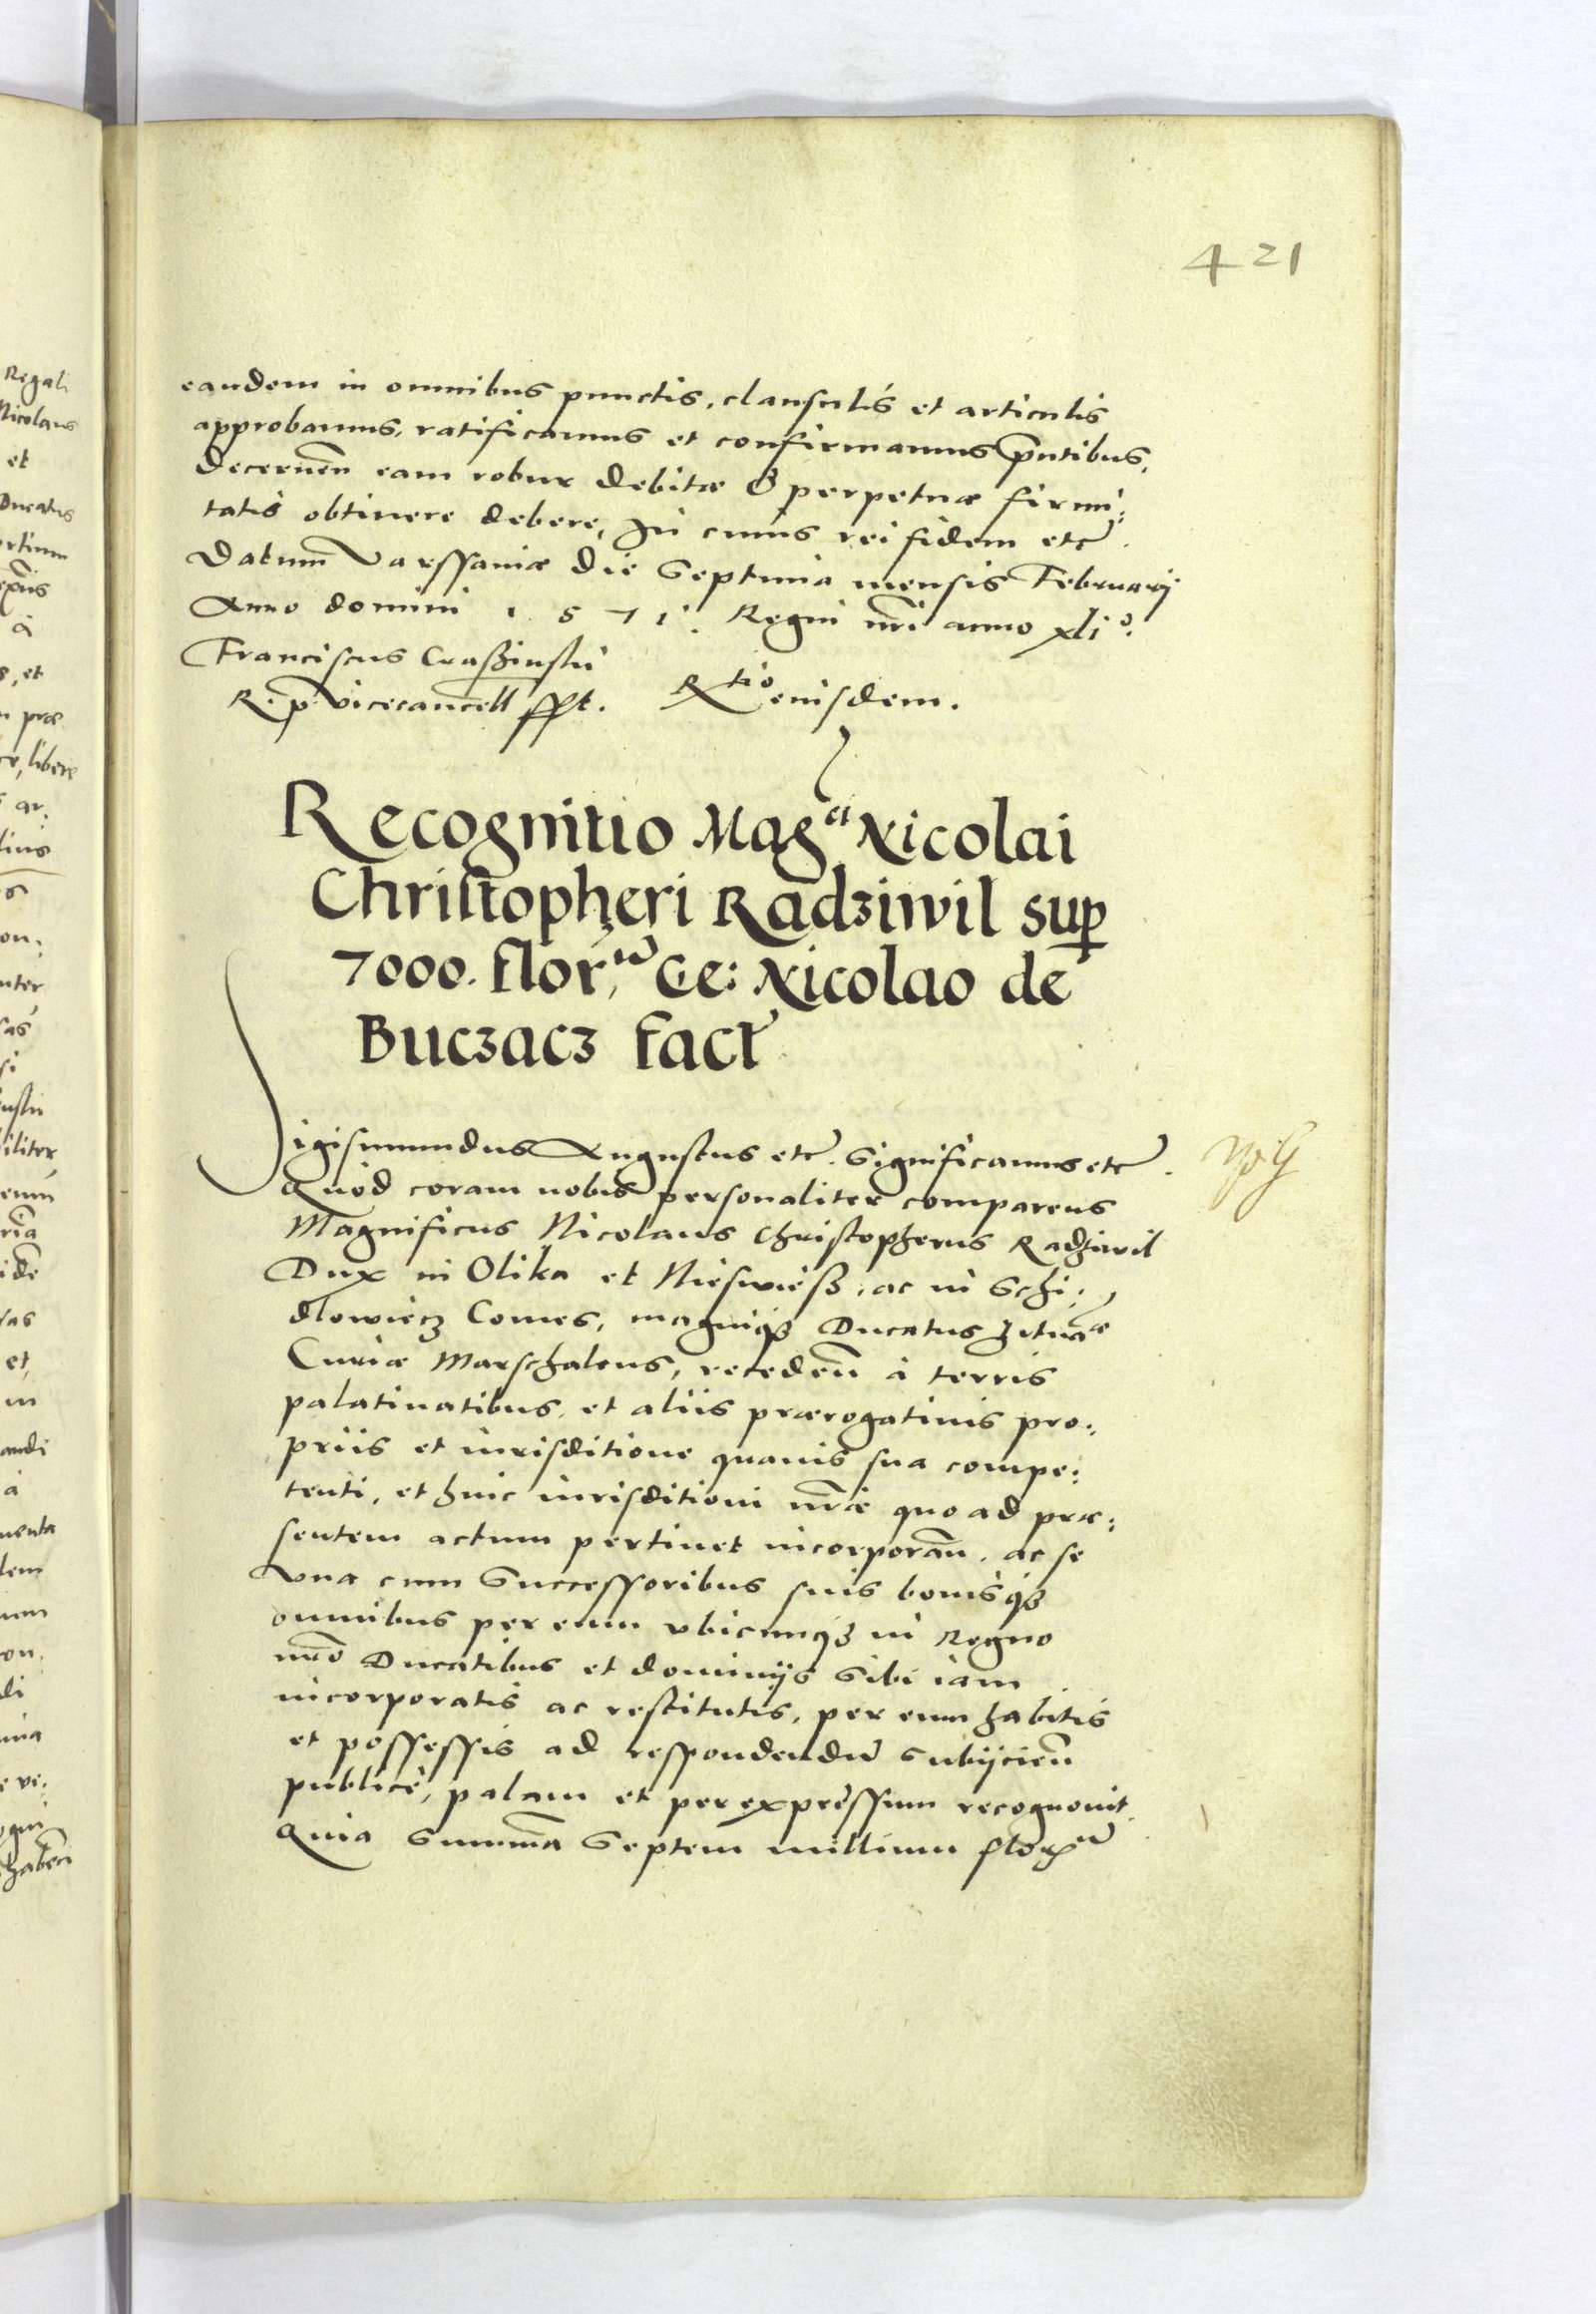 421
eandem in omnibus punctis, clausulis et articulis
approbamus, ratificamus et confirmamus p̄ntibus,
Decernen̄ eam robur debitæ & perpetuæ firmi:
tatis obtinere debere, In cuius rei fidem etc̃.
Datum Varssaviæ die Septima mensis Februarij
Anno domini 1 5 7 1. Regni nr̄i anno xlj°.
Franciscus Crasźinskii
R. p. vicecancell sspt. R tio eiusdem.
Recognitio Mag ci Nicolai
Christopheri Radziwil sup̱
7000. flor, Ge: Nicolao de
Buczacz fact̃
Sigismundus Augustus etc̃. Significamus etc̃.
Quod coram nobis personaliter comparens
Magnificus Nicolaus Christopherus Radziwil
Dux in Olika et Nieswiesz, ac in Schi:
dlowiecz Comes, magniq3 Ducatus Lituaæ
Curiæ Marschalcus, receden̄ à terris
palatinatibus, et aliis prærogatiuis pro:
priis et iurisditione quauis sua compe:
tenti, et huic iurisditioni nr̄æ quo ad præ:
sentem actum pertinet incorporan̄, ac se
vna cum Successoribus suis bonisq3
omnibus per eum vbicunq3 in Regno
nr̄o Ducatibus et dominijs Sibi iam
incorporatis ac restitutis, per eum habitis
et possessis ad respondendũ Subijcien̄
publicè, palam et per expressum recognouit.
Quia Summa Septem millium flor
Regali
Nicolaus
et
Ducatus
à
s, et
libere
et
in
andi
à